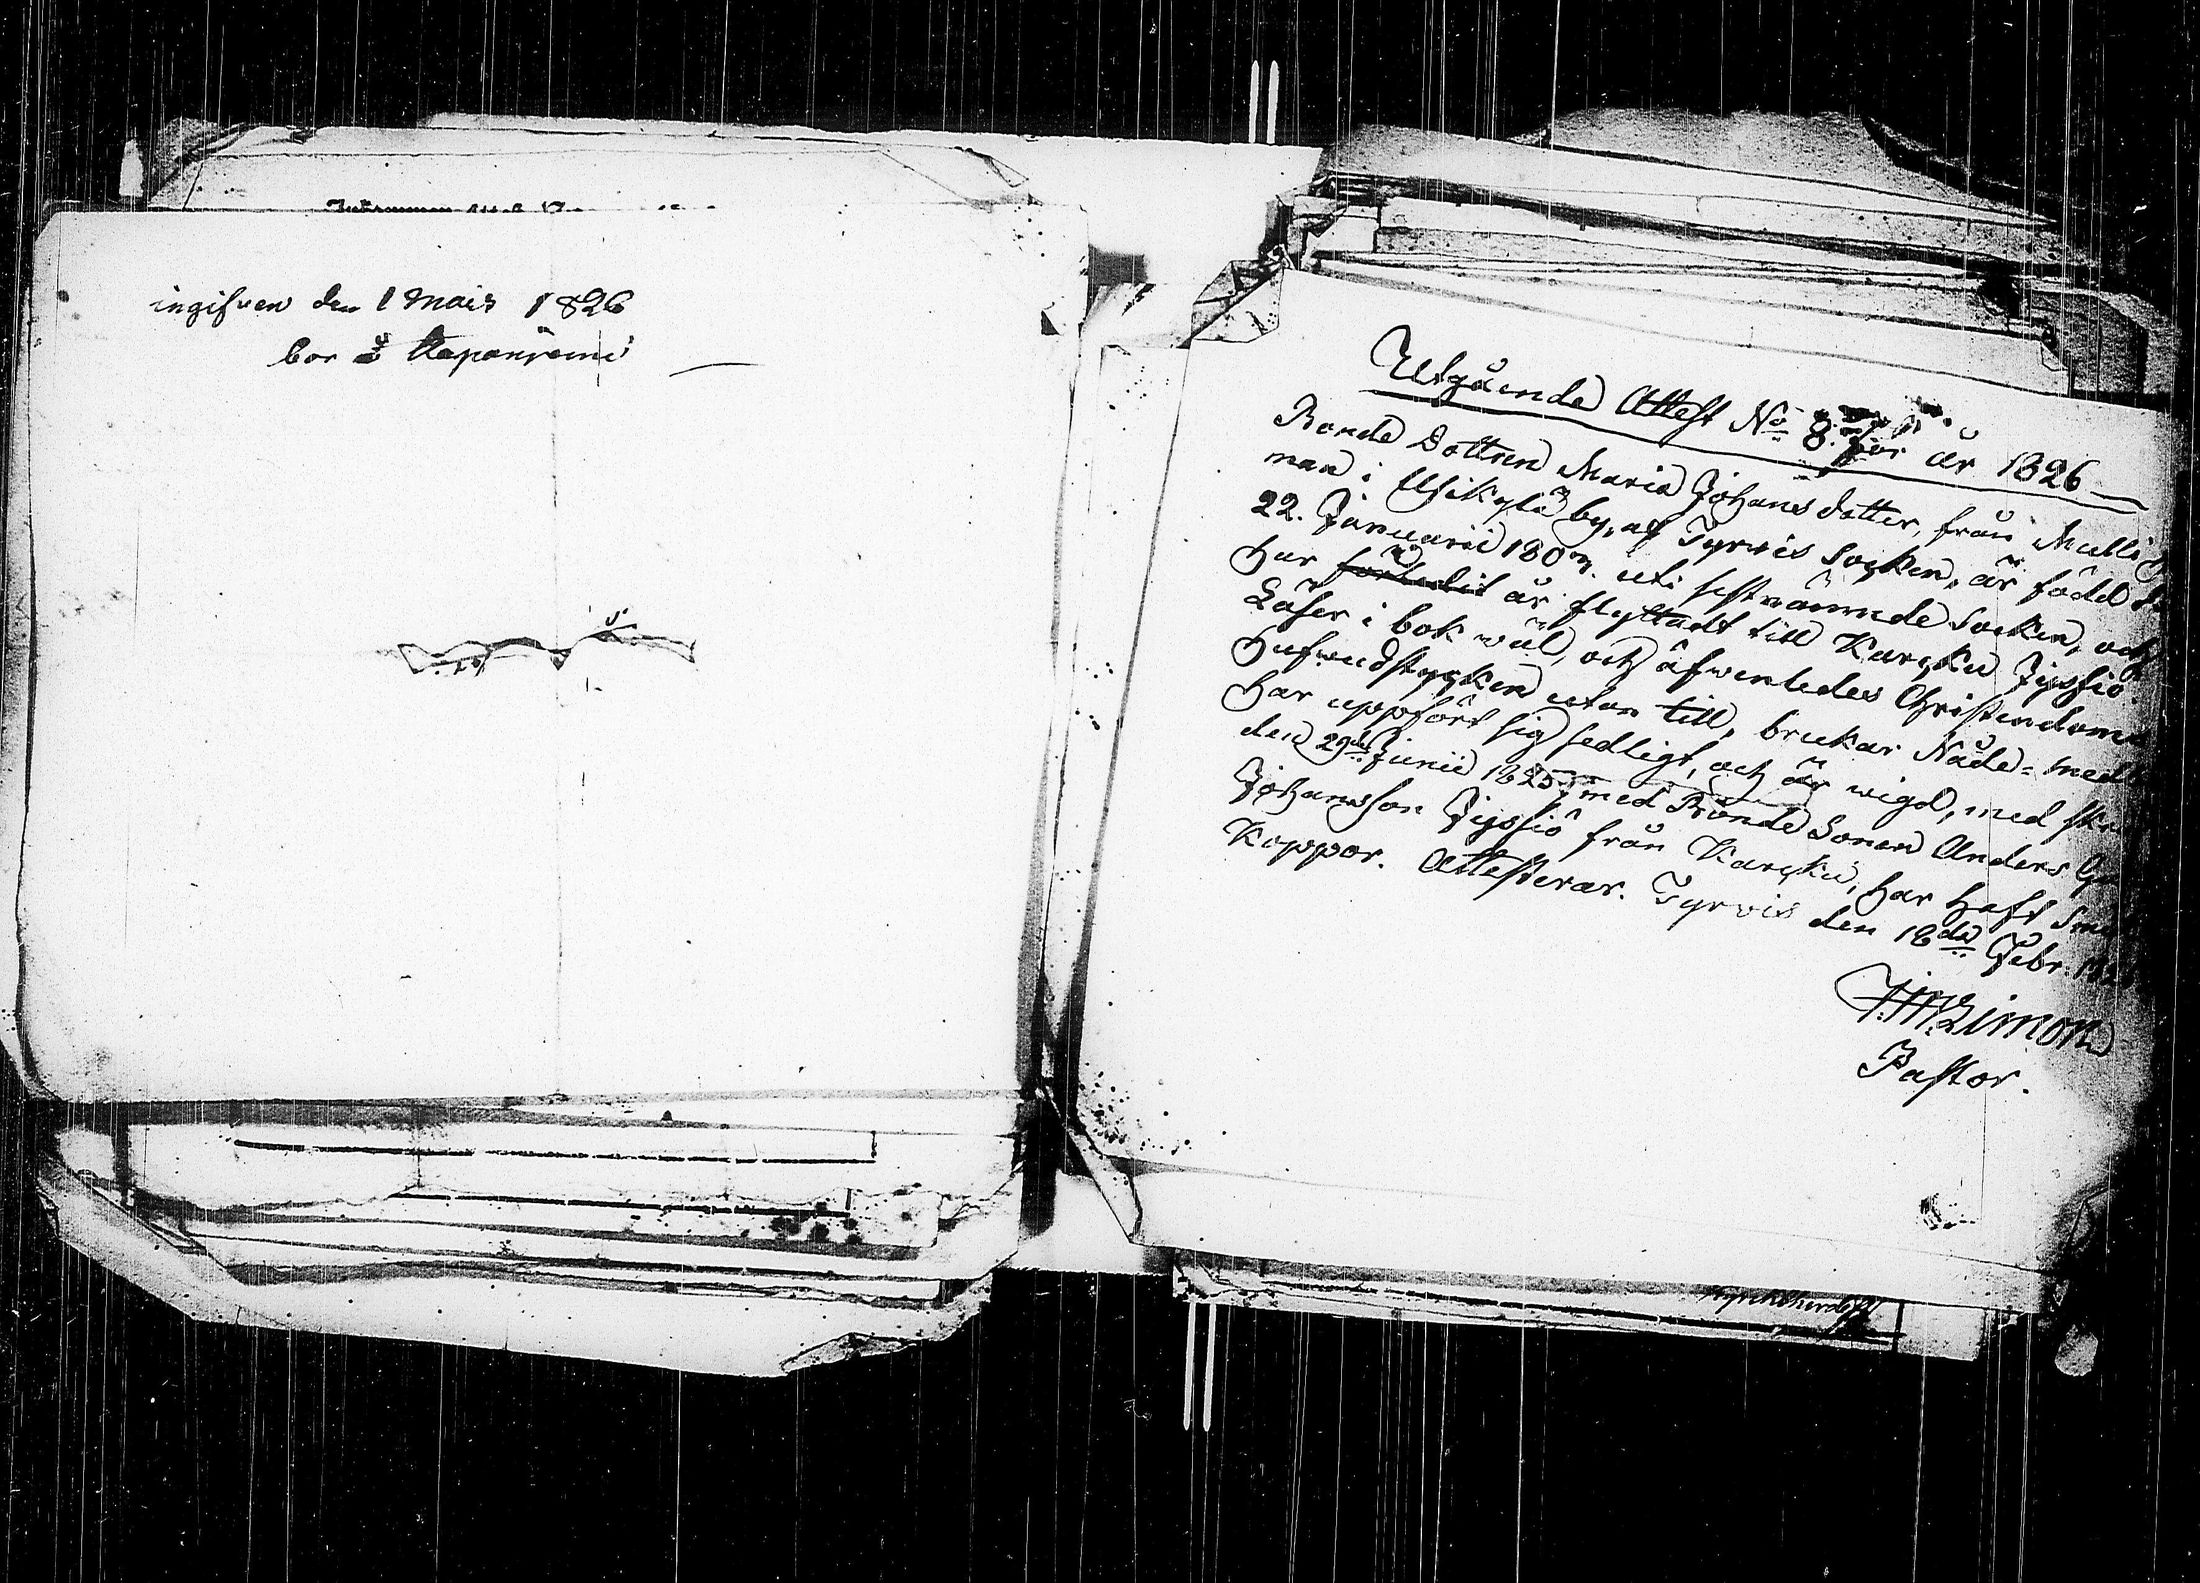 ingifven den 1 Mars 1826
bor å Kapanjemi
Utgående Attest No 8. för år 1826
Bonde Dottren Maria Johans dotter, från Mulli
man i Uhikylä by, af Tyrvis Socken, är född
22. Januarii 180 uti sistnämnde Socken, och
har är flyttadt till Karcku Jyssiö.
Läser i bok wäl, och äfwenledes Christendoms
hufwudstycken utan till, brukar Nåde-med
har uppfört sig sedligt, och är wigd, med
den 29de Junii 1825, med Bonde Sonen Anders
Johansson Jyssiö från Karcku, har haft
Koppor. Attesterar. Tyrvis den 16de Febr.
Pastor.